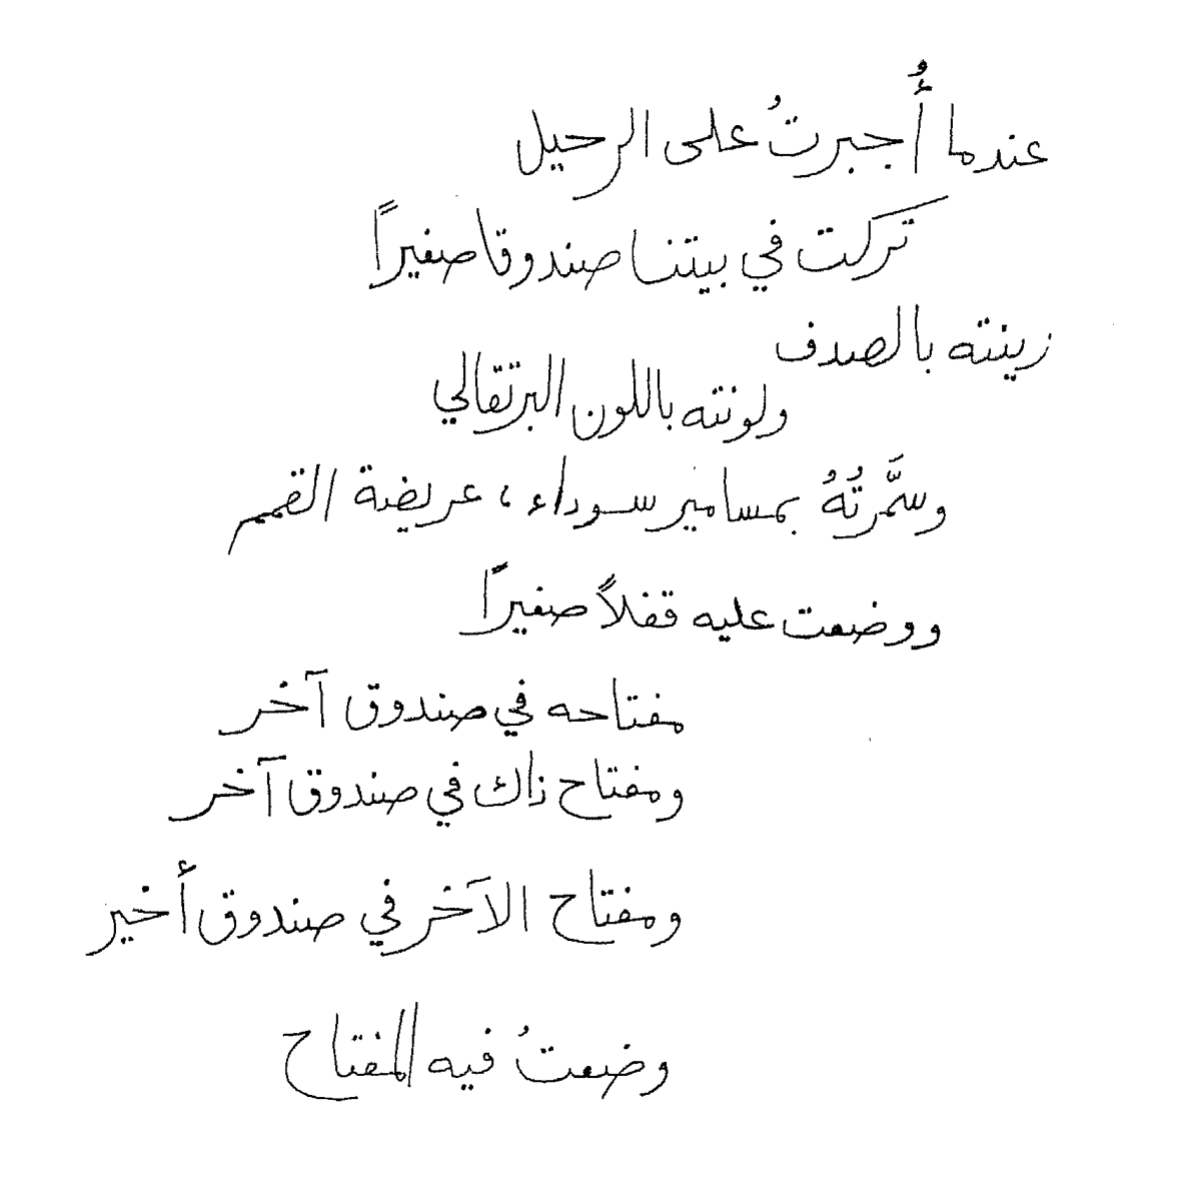 عندما أُجبرتُ على الرحيل
تركت في بيتنا صندوقا صغيراً
زينته بالصدف
ولونته باللون البرتقالي
وسمَّرتُهُ بمسامير سوداء، عريضة القمم
ووضعت عليه قفلاً صغيراً
مفتاحه في صندوق آخر
ومفتاح ذاك في صندوق آخر
ومفتاح الآخر في صندوق أخير
وضعتُ فيه المفتاح